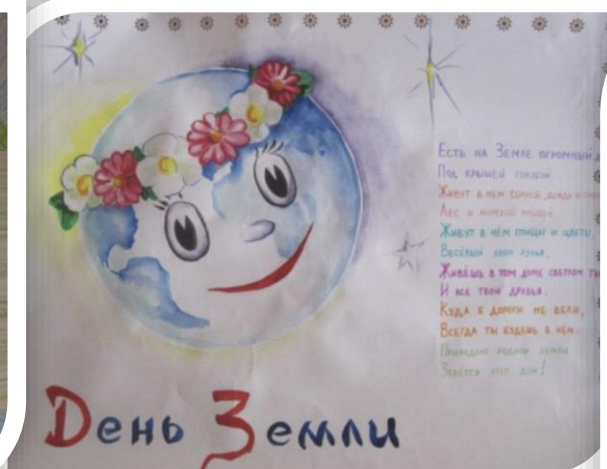 День Земли
Есть на Земле огромный
Под крышей голубой.
Живут в нём солнце, дождь и
Лес и морской прибой.
Живут в нём птицы и цветы,
Весёлый звон ручья,
Живёшь в том доме светлом ты
И все твои друзья.
Куда б дороги не вели,
Всегда ты будешь в нём.
Природою родной земли
Зовётся этот дом!